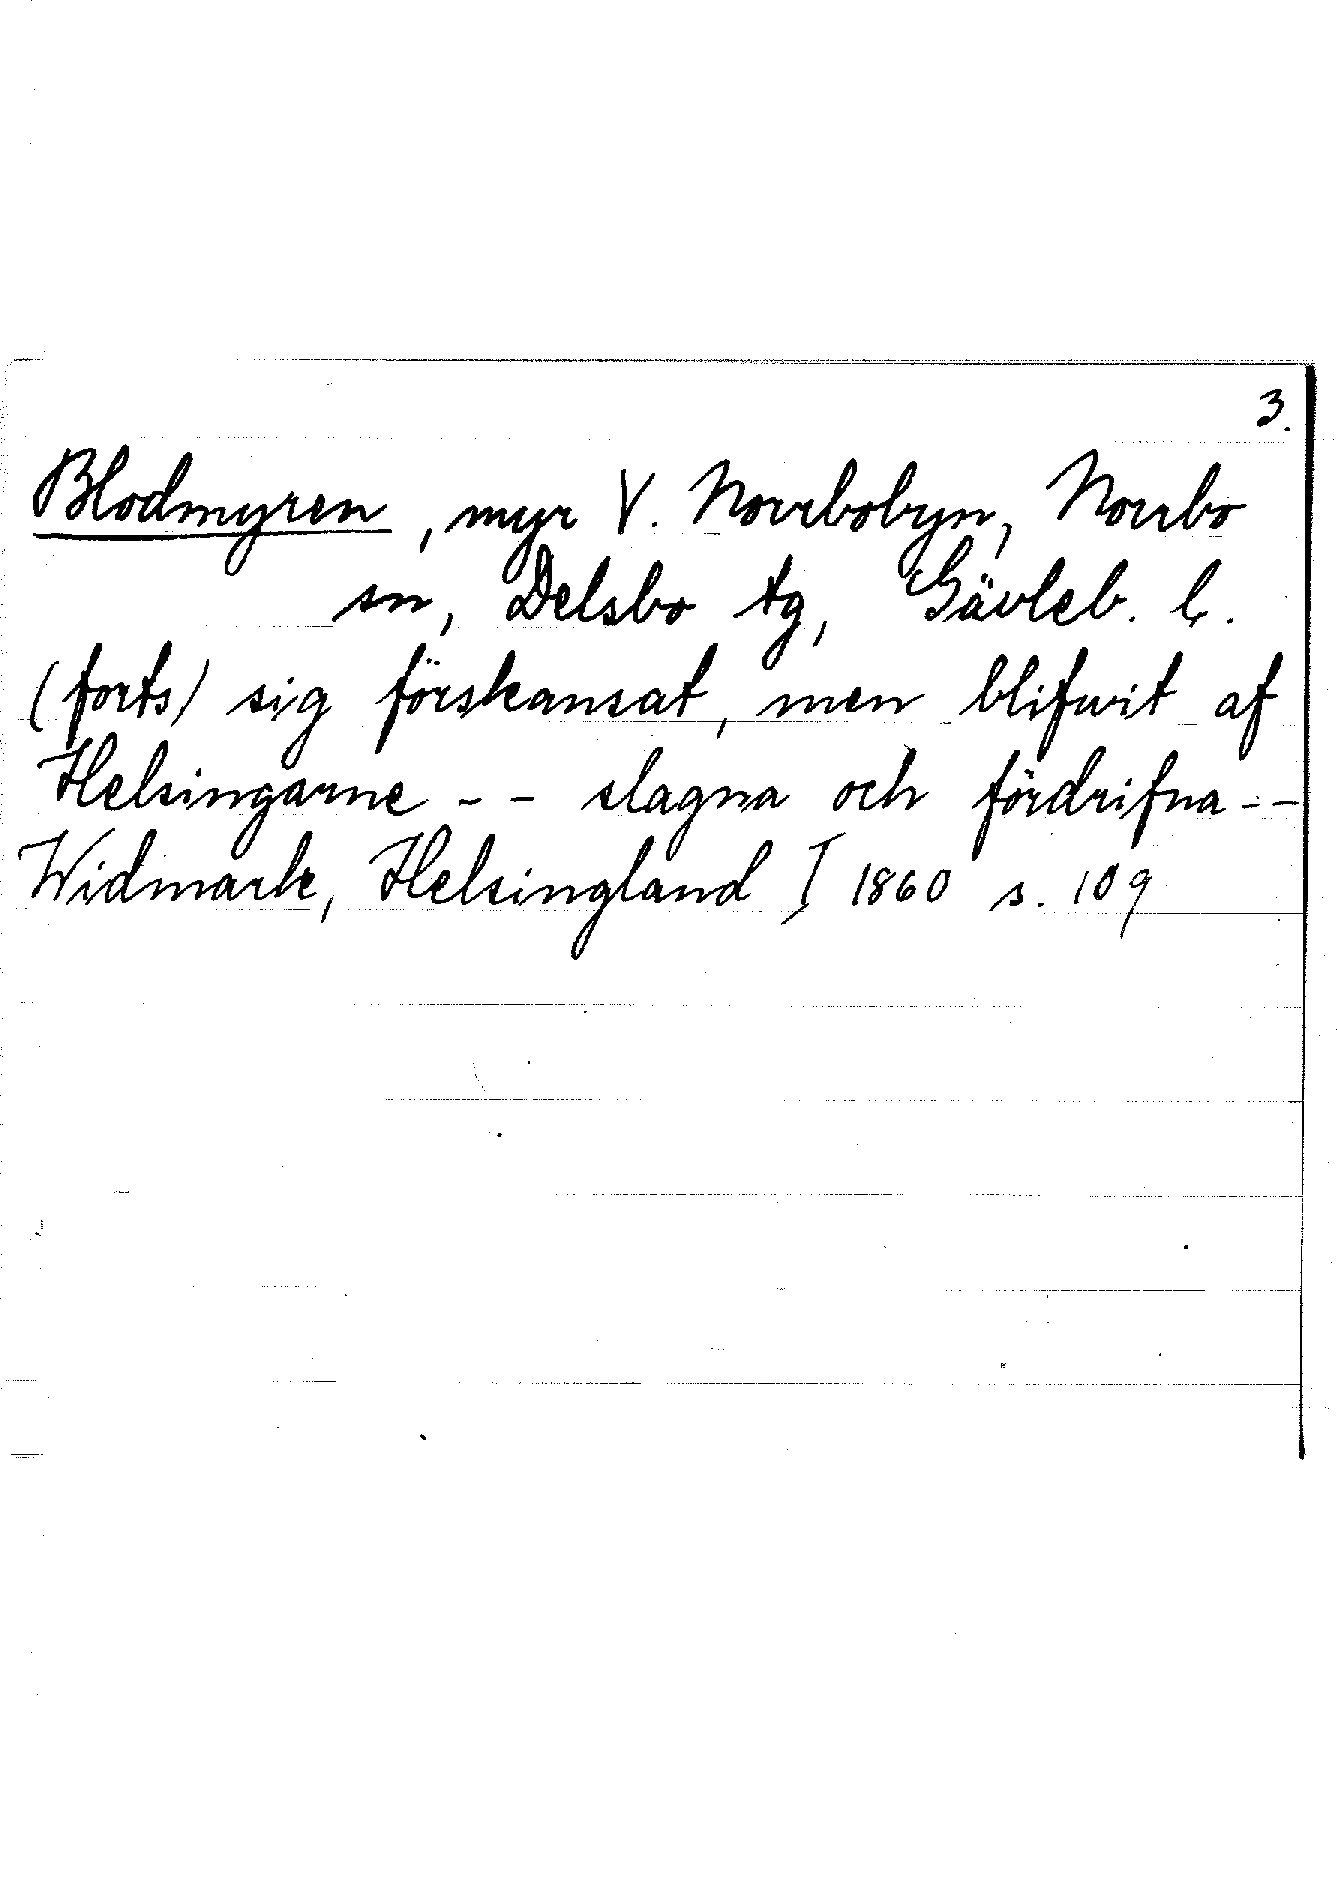 3.
Blodmyren, myr V. Norrbobyn, Norrbo
sn, Delsbo tg, Gävleb. l.
(forts) sig förskansat, men blifwit af
Helsingarne -- slagna och fördrifna --
Widmark, Helsingland I 1860 s. 109